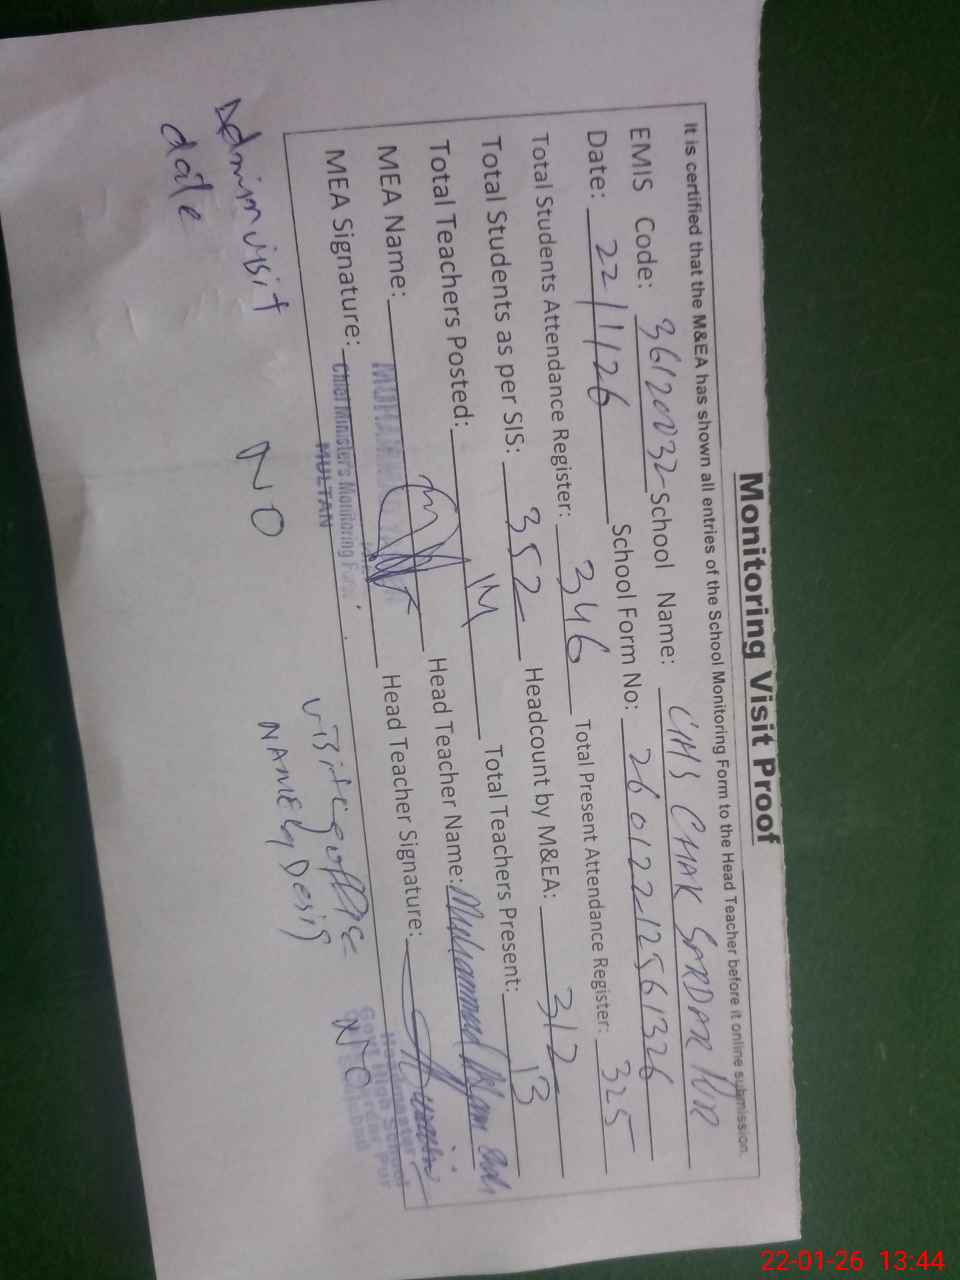 Monitoring Visit Proof
It is certified that the M&EA has shown all entries of the School Monitoring Form to the Head Teacher before it online submission.
EMIS Code: 36120032 School Name: GHS CHAK SARDAR PUR
Date: 22/1/26 School Form No: 26012212561326
Total Students Attendance Register: 346 Total Present Attendance Register: 325
Total Students as per SIS: 352 Headcount by M&EA: 312
Total Teachers Posted: 14 Total Teachers Present: 13
MEA Name: Head Teacher Name: Muhammad
MEA Signature: Head Teacher Signature:
Chief Minister's Monitoring Force
MULTAN
Headmaster
Govt. High School
Sardar Pur
visiting office NO
NAME & Desig
Admin visit NO
date
22-01-26 13:44